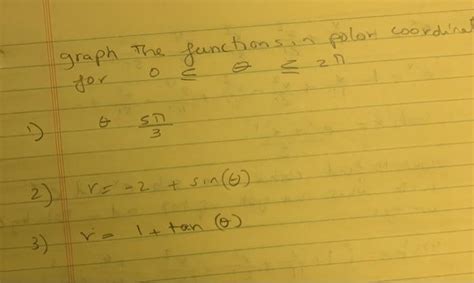 graph the functions in polar coordinat
for 0 ≤ θ ≤ 2π
1) θ 5π/3
2) r = -2 + sin(θ)
3) r = 1 + tan(θ)